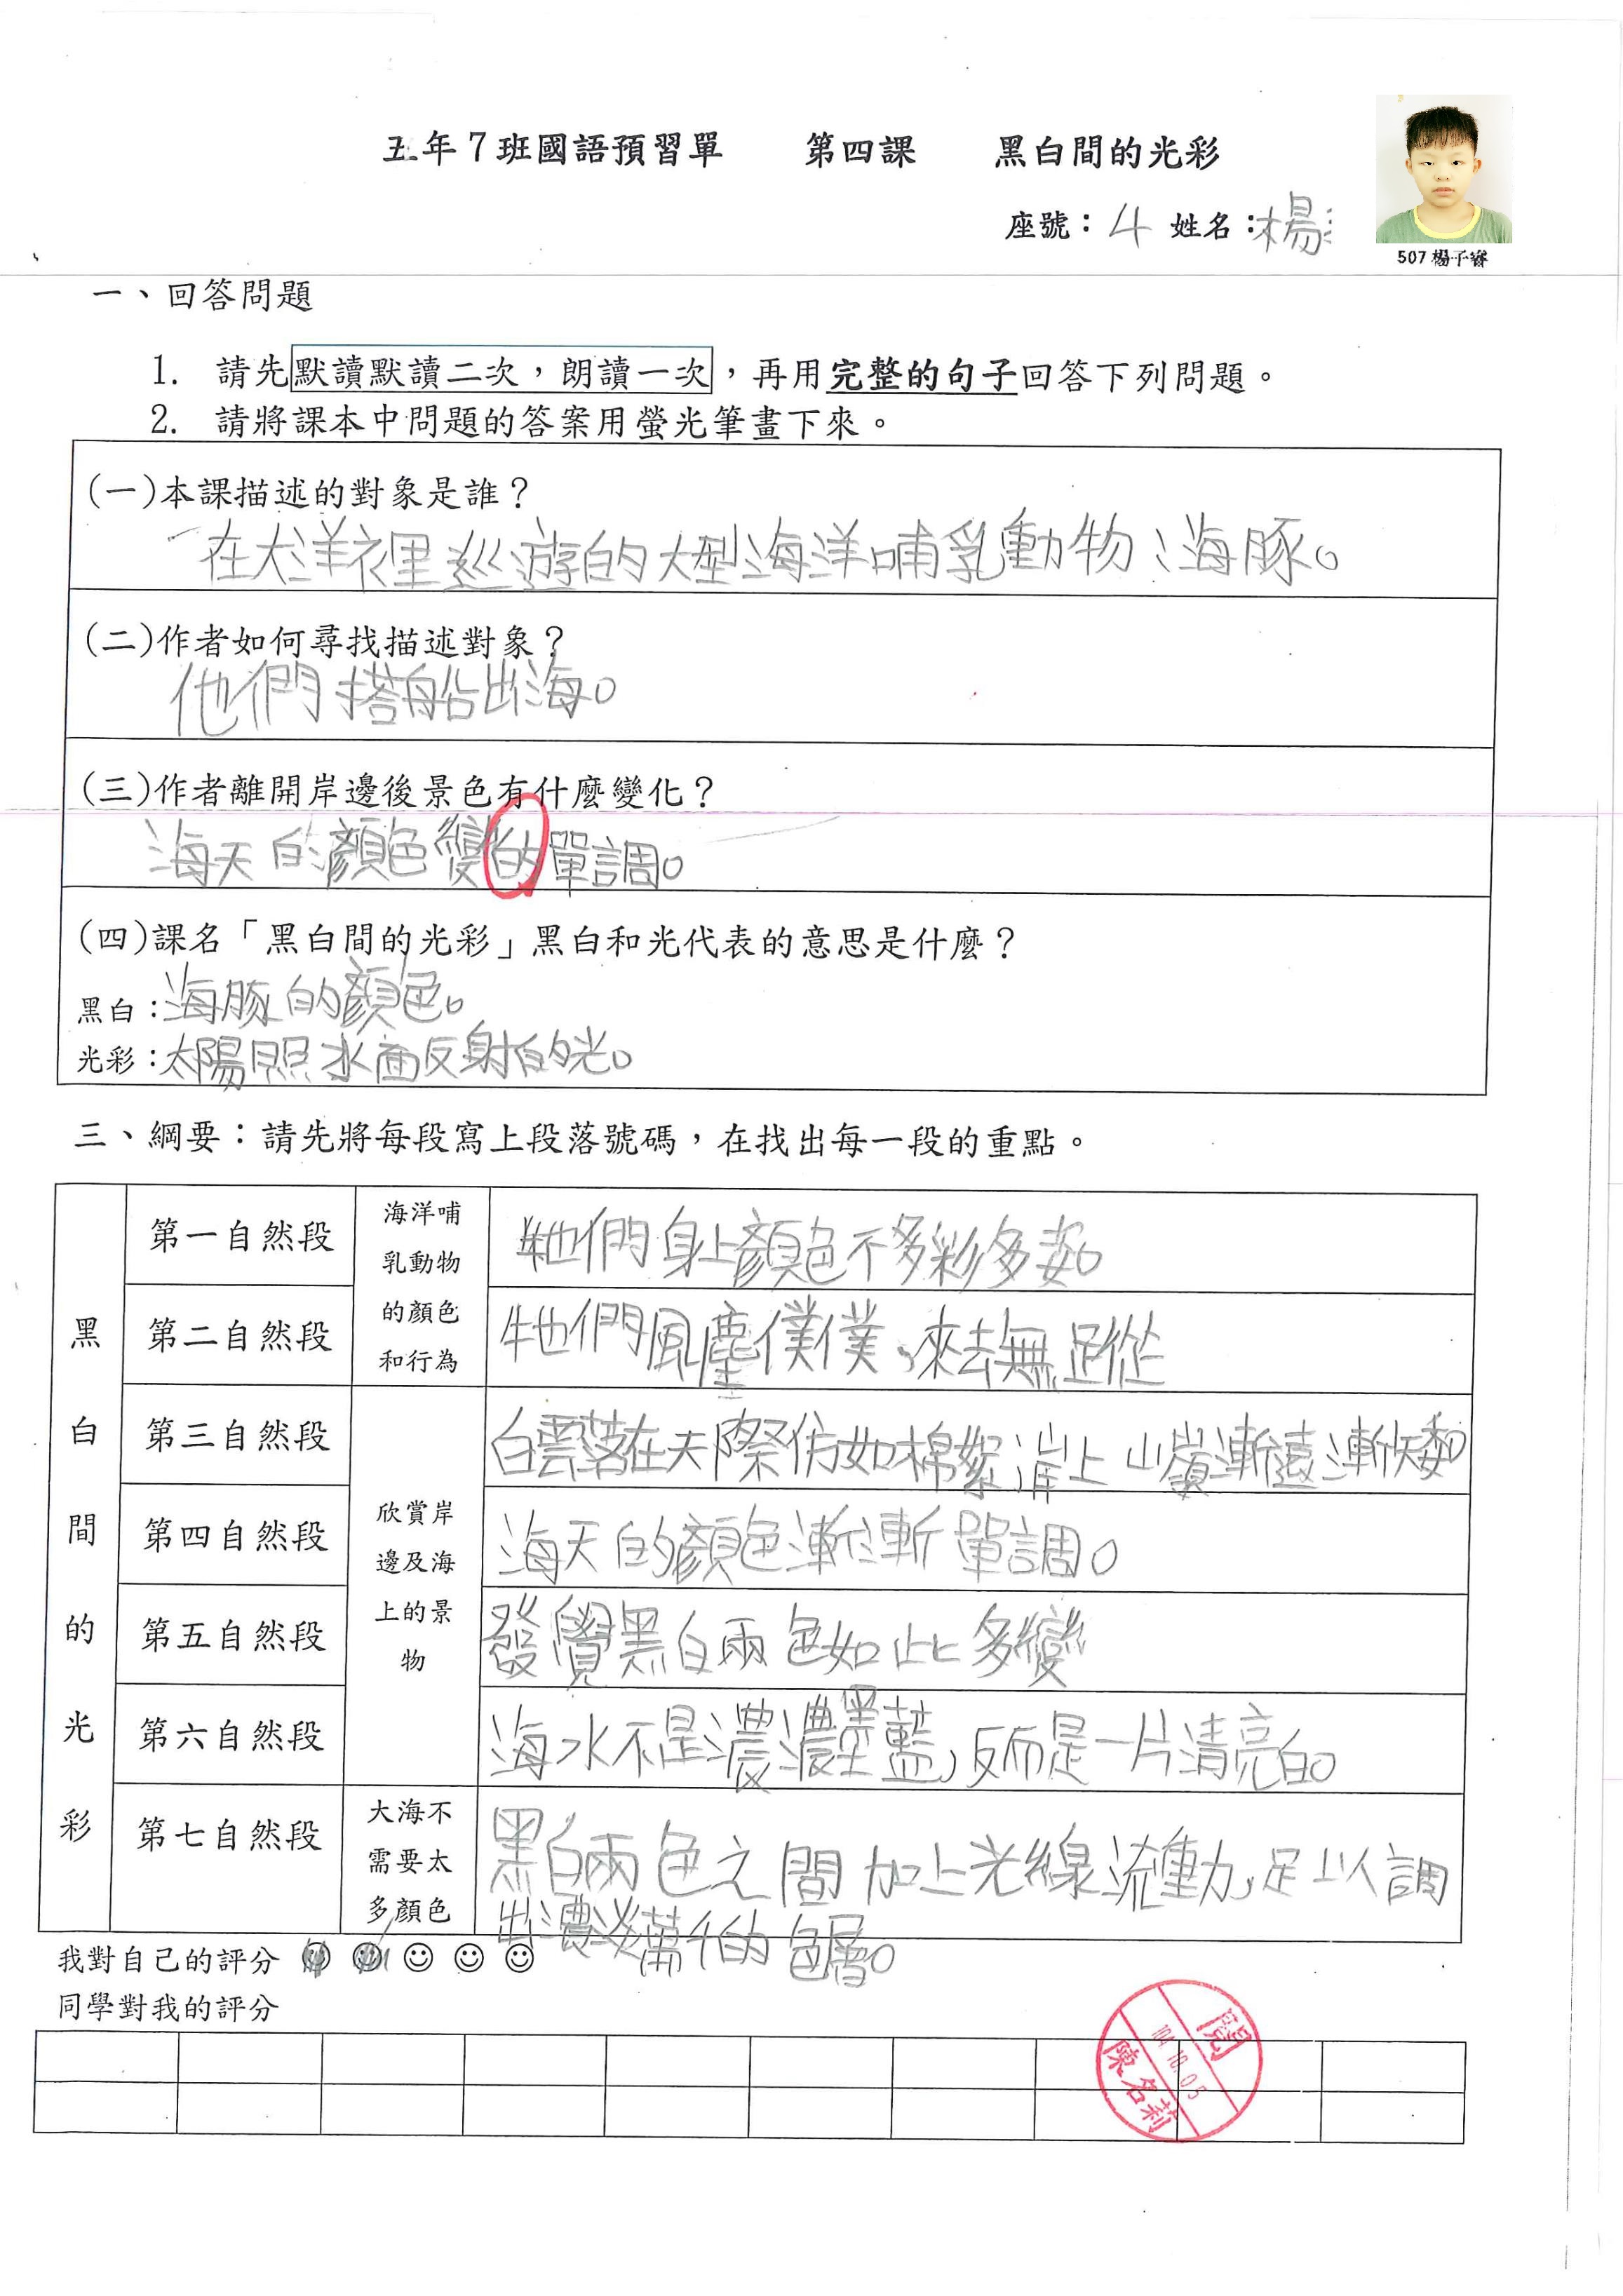 五年7班國語預習單 第四課 黑白間的光彩
座號：4 姓名：楊
507 楊子睿
一、回答問題
1. 請先默讀默讀二次，朗讀一次，再用完整的句子回答下列問題。
2. 請將課本中問題的答案用螢光筆畫下來。
(一)本課描述的對象是誰？
在大洋裡巡游的大型海洋哺乳動物：海豚。
(二)作者如何尋找描述對象？
他們搭船出海。
(三)作者離開岸邊後景色有什麼變化？
海天的顏色變的單調。
(四)課名「黑白間的光彩」黑白和光代表的意思是什麼？
黑白：海豚的顏色。
光彩：太陽照水面反射的光。
三、綱要：請先將每段寫上段落號碼，在找出每一段的重點。
黑白間的光彩
第一自然段
海洋哺乳動物的顏色和行為
牠們身上顏色不多彩多姿。
第二自然段
牠們風塵僕僕、來去無足從
第三自然段
欣賞岸邊及海上的景物
白雲落在天際仿如棉絮岸上山嶺漸遠漸矮。
第四自然段
海天的顏色漸漸單調。
第五自然段
發覺黑白兩色如此多變
第六自然段
海水不是濃濃墨藍，反而是一片清亮白。
第七自然段
大海不需要太多顏色
黑白兩色之間加上光線流動，足以調
出濃淡萬千的色層。
我對自己的評分
同學對我的評分
閱
104.10.05
陳名莉